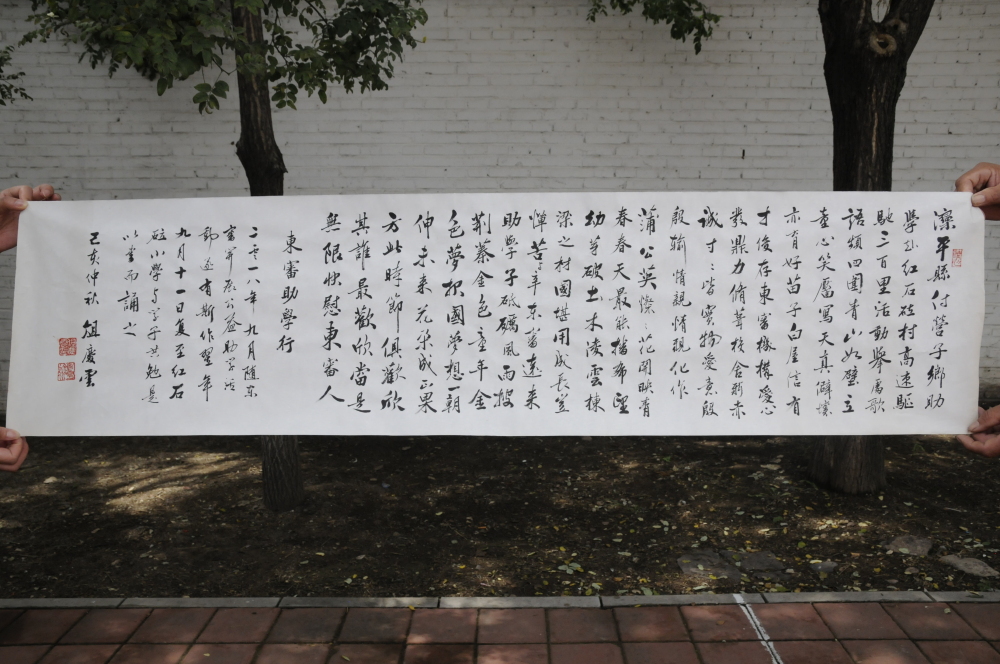 灤平縣付營子鄉助
學赴紅石砬村高速驅
馳二百里活動舉處歌
語頻四圍青山如壁立
童心笑靨寫天真僻壤
亦有好苗子白屋信有
才俊存東審機機愛心
鼎力脩葺校舍
誠寸寸皆寶物愛意殷
殷輸情親情親化作
蒲公英燦燦花開映青
春春天最能播希望
幼芽破土木凌雲棟
梁之材國堪用成長豈
憚苦辛東審遠來
助學子砥礪風雨披
荊蓁金色童年金
色夢想國夢想一朝
伸未來花朵成正果
方此時節俱歡欣
其誰最歡欣當是
無限快慰東審人
東審助學行
二零一八年九月隨東
審公益助學活
動並有斯作翌年
九月十一日复至紅石
砬小學與學子共勉是
以書而誦之
己亥仲秋 俎慶雲